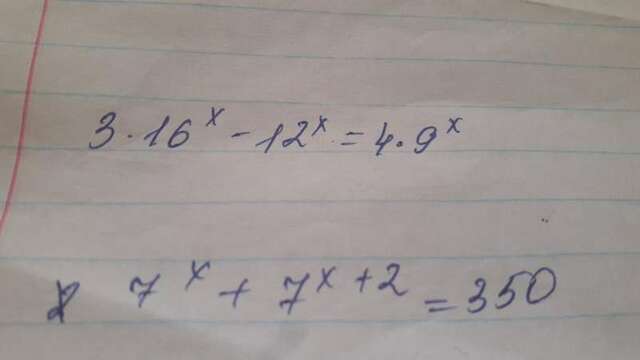 3·16^x - 12^x = 4·9^x
7^x + 7^x+2 = 350